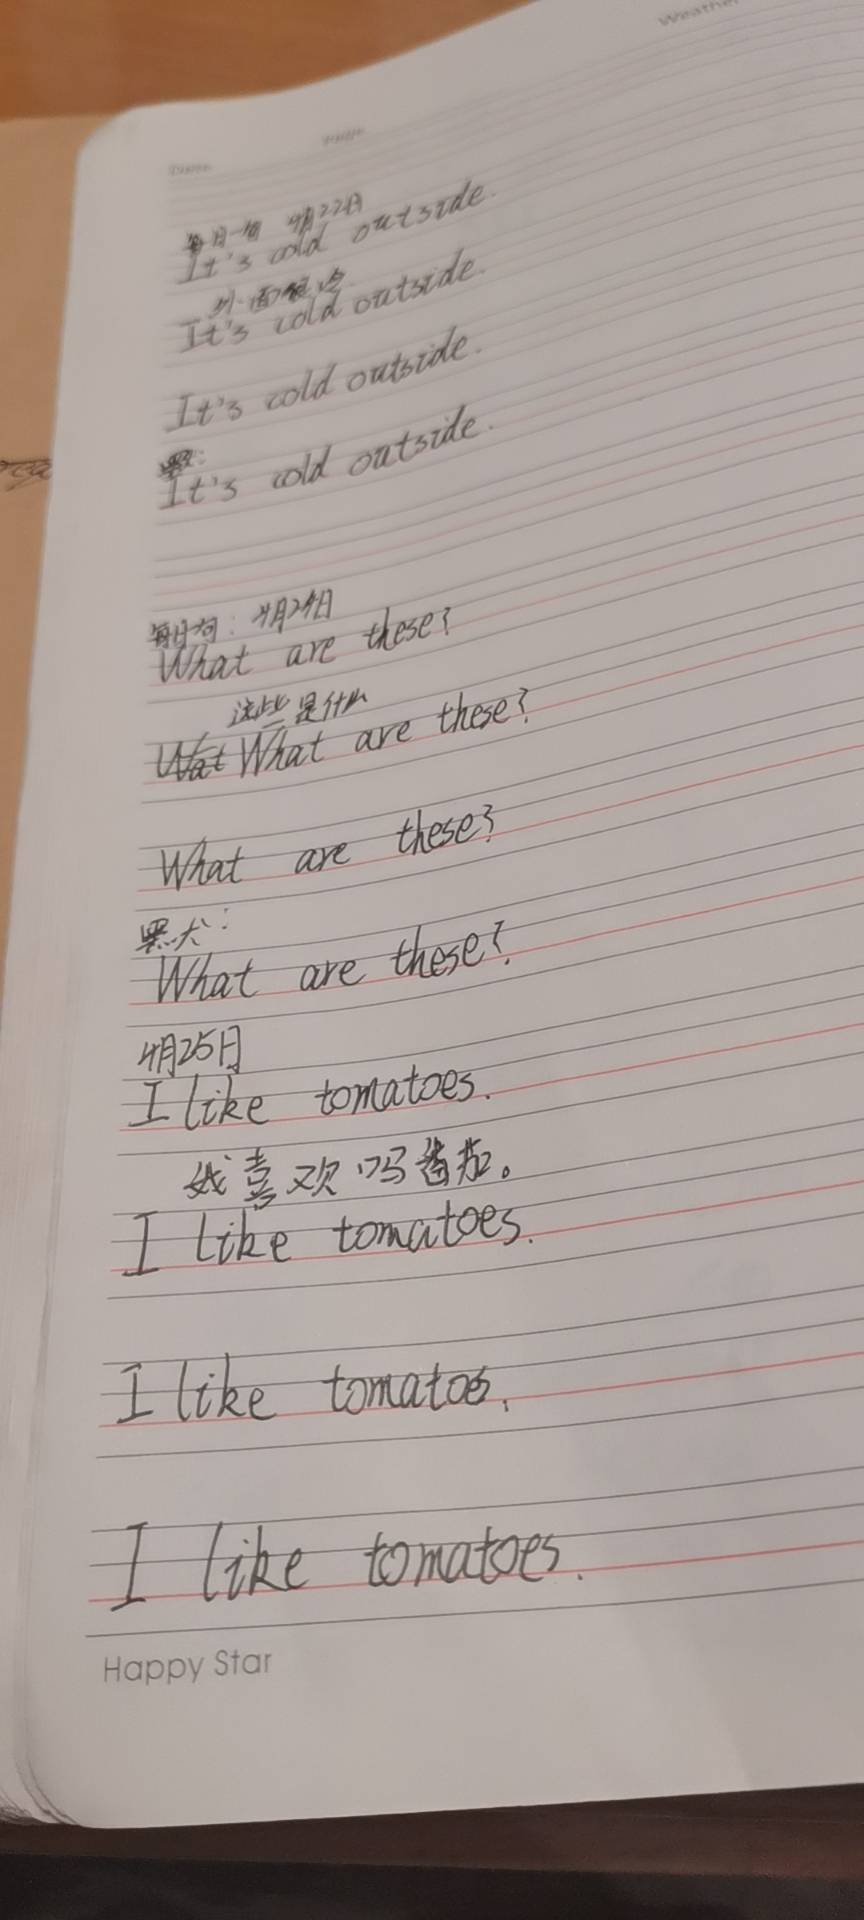 Weather
每日一句 4月22日
It's cold outside.
外面很冷
It's cold outside.
It's cold outside.
It's cold outside.
每日一句: 4月24日
What are these?
这些是什么
Wat What are these?
What are these?
What are these?
4月25日
I like tomatoes.
我喜欢吗番茄。
I like tomatoes.
I like tomatoes.
I like tomatoes.
Happy Star